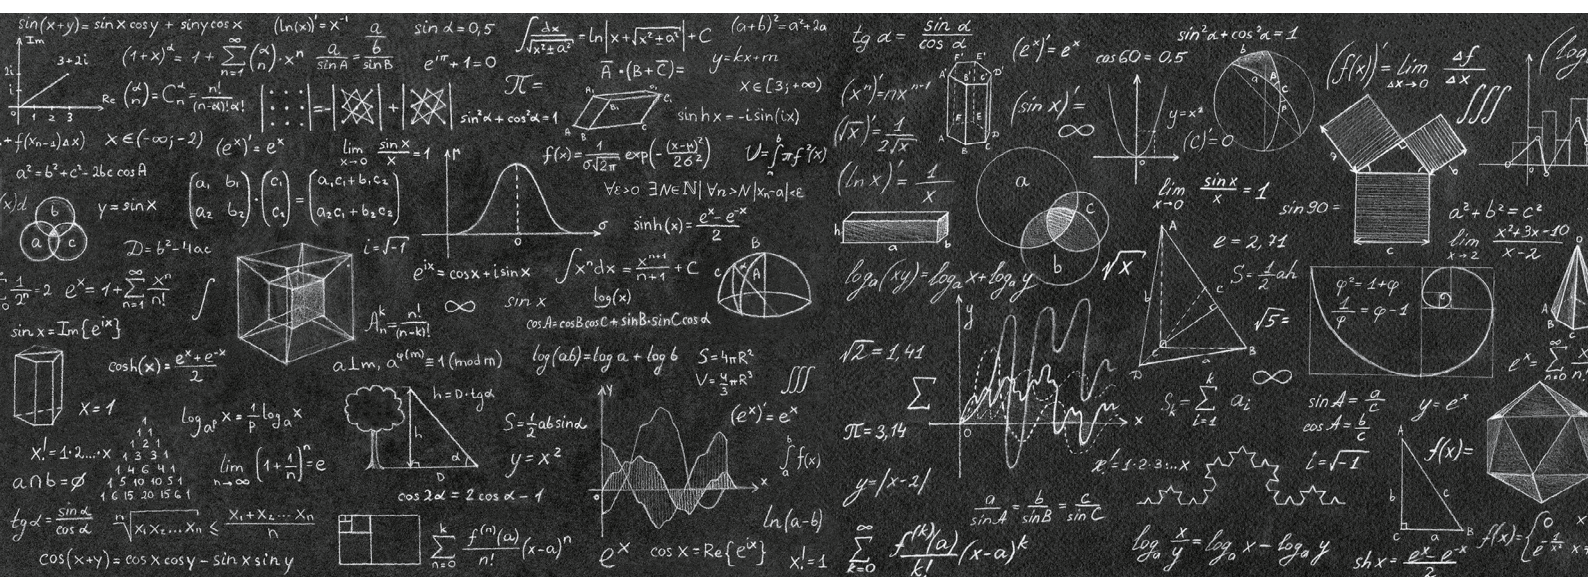 sin(x+y) = sinx cosy + siny cosx
(ln(x))' = x⁻¹
a/b
a/sinA = b/sinB
sin α = 0,5
∫ dx/√(x²±a²) = ln|x+√(x²±a²)|+C
(a+b)² = a²+2a
Im
3+2i
2i
i
0 1 2 3
Re
(1+x)^α = 1 + ∑_{n=1}^{∞} (α n)·xⁿ
e^{iπ}+1=0
A̅·(B̅+C̅)=
y=kx+m
(α n) = C_n^α = n!/((n-α)!α!)
π=
x∈[3;+∞)
sin²α + cos²α = 1
A₁ B₁ C₁
A B C
sinhx = -isin(ix)
+ f(x_{n-1})Δx)
x∈(-∞;-2)
(eˣ)' = eˣ
lim_{x→0} sinx/x = 1
f(x) = 1/(σ√2π) exp(-(x-μ)²/2σ²)
V=∫_a^b πf²(x)
a²=b²+c²-2bc cosA
(a₁ b₁ a₂ b₂)·(c₁ c₂) = (a₁c₁+b₁c₂ a₂c₁+b₂c₂)
∀ε>0 ∃N∈ℕ| ∀n>N |xₙ-a|<ε
(x)d
b
a c
y=sinx
M
0
σ
sinh(x) = (eˣ-e⁻ˣ)/2
D=b²-4ac
i=√-1
e^{ix} = cosx+isinx
∫xⁿdx = x^{n+1}/(n+1) + C
B
c α A
1/2ⁿ = 2
eˣ=1+∑_{n=1}^{∞} xⁿ/n!
∫
∞
sin x
log(x)
sin x = Im{e^{ix}}
A_n^k = n!/(n-k)!
cosA=cosBcosC+sinB·sinCcosα
cosh(x) = (eˣ+e⁻ˣ)/2
a⊥m, a^{φ(m)} ≡ 1 (mod m)
log(ab) = log a + log b
S=4πR²
V=4/3πR³
∭
x=1
log_{aᵖ} x = 1/p log_a x
h=D·tgα
h
D
α
S=1/2absinα
y
(eˣ)' = eˣ
x!=1·2....·x
1
1 1
1 2 1
1 3 3 1
1 4 6 4 1
1 5 10 10 5 1
1 6 15 20 15 6 1
lim_{n→∞} (1+1/n)ⁿ = e
y=x²
∫_a^b f(x)
a∩b=∅
cos2α = 2cosα-1
0
x
tgα = sinα/cosα
ⁿ√(x₁x₂...xₙ) ≤ (x₁+x₂...xₙ)/n
ln(a-b)
cos(x+y) = cosx cosy - sinx siny
∑_{n=0}^{k} f⁽ⁿ⁾(a)/n! (x-a)ⁿ
eˣ
cosx=Re{e^{ix}}
x!=1
tg α = sin α/cos α
(eˣ)' = eˣ
cos60 = 0,5
sin²α+cos²α=1
(f(x))' = lim_{Δx→0} Δf/Δx
(log
(xⁿ)' = nx^{n-1}
A' B' C' D' E' F'
A B C D E F
(sin x)' =
∞
y=x²
0
(c)'=0
b
a B
C
A
∭
(√x)' = 1/(2√x)
(ln x)' = 1/x
a
c
b
lim_{x→0} sinx/x = 1
sin90 =
a b
c
a²+b²=c²
0
h
a
b
e = 2,71
lim_{x→2} (x²+3x-10)/(x-2)
log_a(xy) = log_a x + log_a y
√x
A
b
c
C
B
a
D
S=1/2ah
φ²=1+φ
1/φ = φ-1
√5 =
√2 = 1,41
y
0
x
∞
eˣ = ∑_{n=0}^{∞}
∑
S_k = ∑_{i=1}^{k} a_i
sinA = a/c
cosA = b/c
y=eˣ
π=3,14
x!=1·2·3·...x
i=√-1
f(x)=
y=|x-2|
A
b
c
C a B
a/sinA = b/sinB = c/sinC
∑_{k=0}^{∞} f⁽ᵏ⁾(a)/k! (x-a)ᵏ
log_a x/y = log_a x - log_a y
shx = (eˣ-e⁻ˣ)/2
f(x)={0 e^{-1/x²}